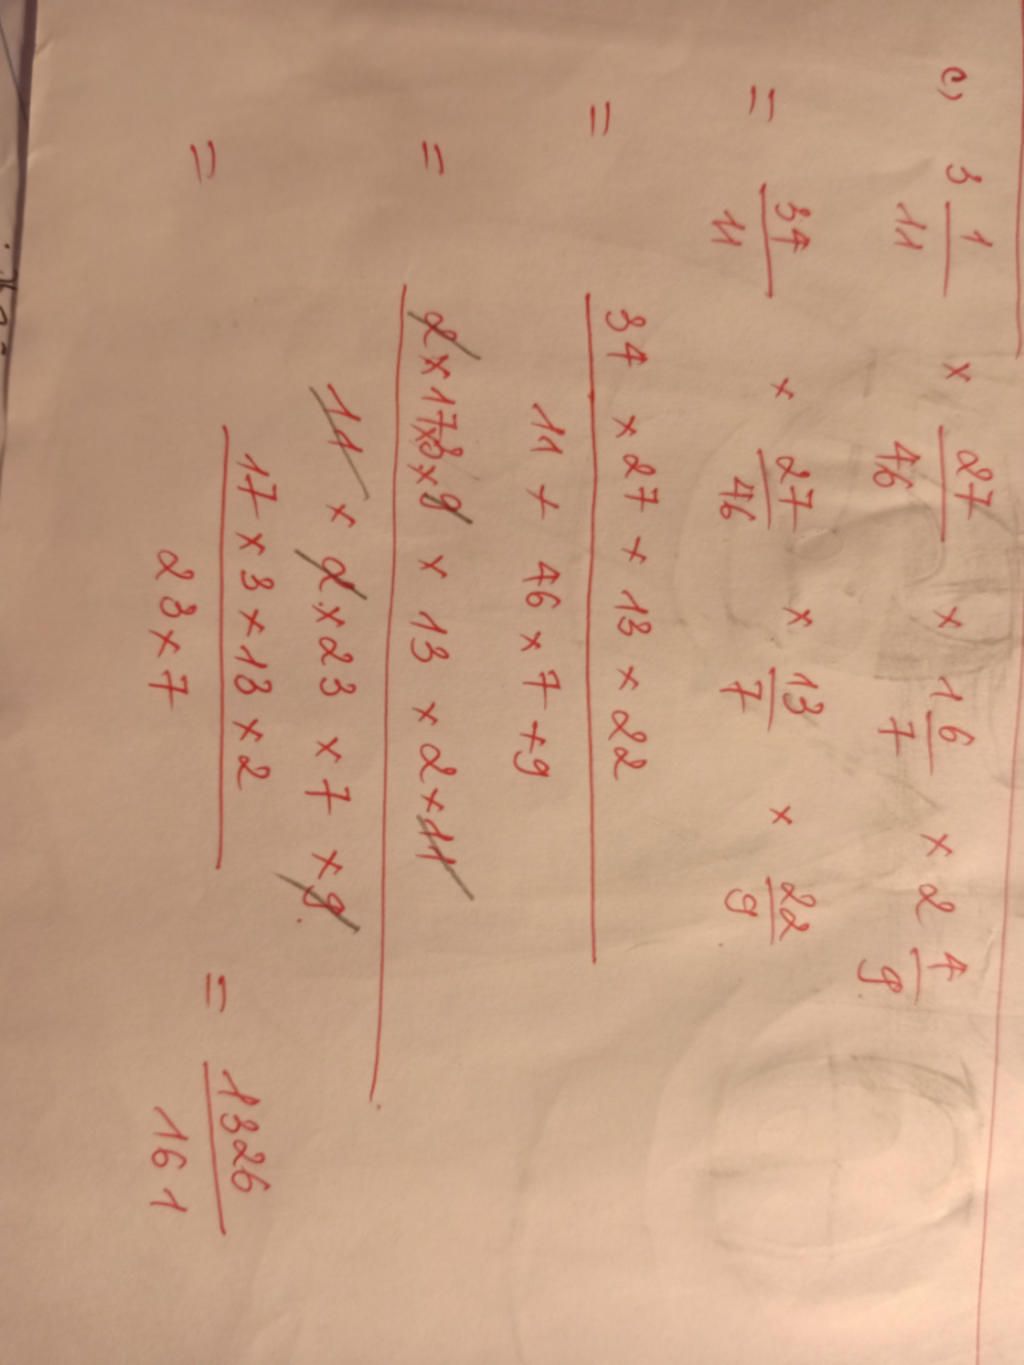 c) 3 1/11 × 27/46 × 1 6/7 × 2 4/9
= 34/11 × 27/46 × 13/7 × 22/9
= 34 × 27 × 13 × 22
11 × 46 × 7 × 9
= 2 × 17 × 3 × 9 × 13 × 2 × 11
11 × 2 × 23 × 7 × 9
= 17 × 3 × 13 × 2 / 23 × 7 = 1326/161